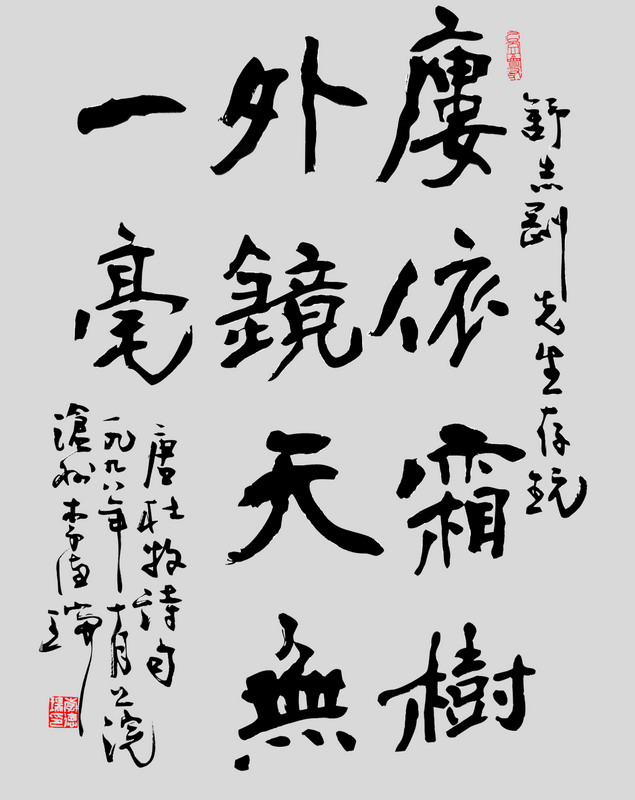 舒志剛 先生存玩
廔依霜樹
外鏡天無
一毫
唐杜牧詩句
一九九八年十月上浣
滄州李德瑞